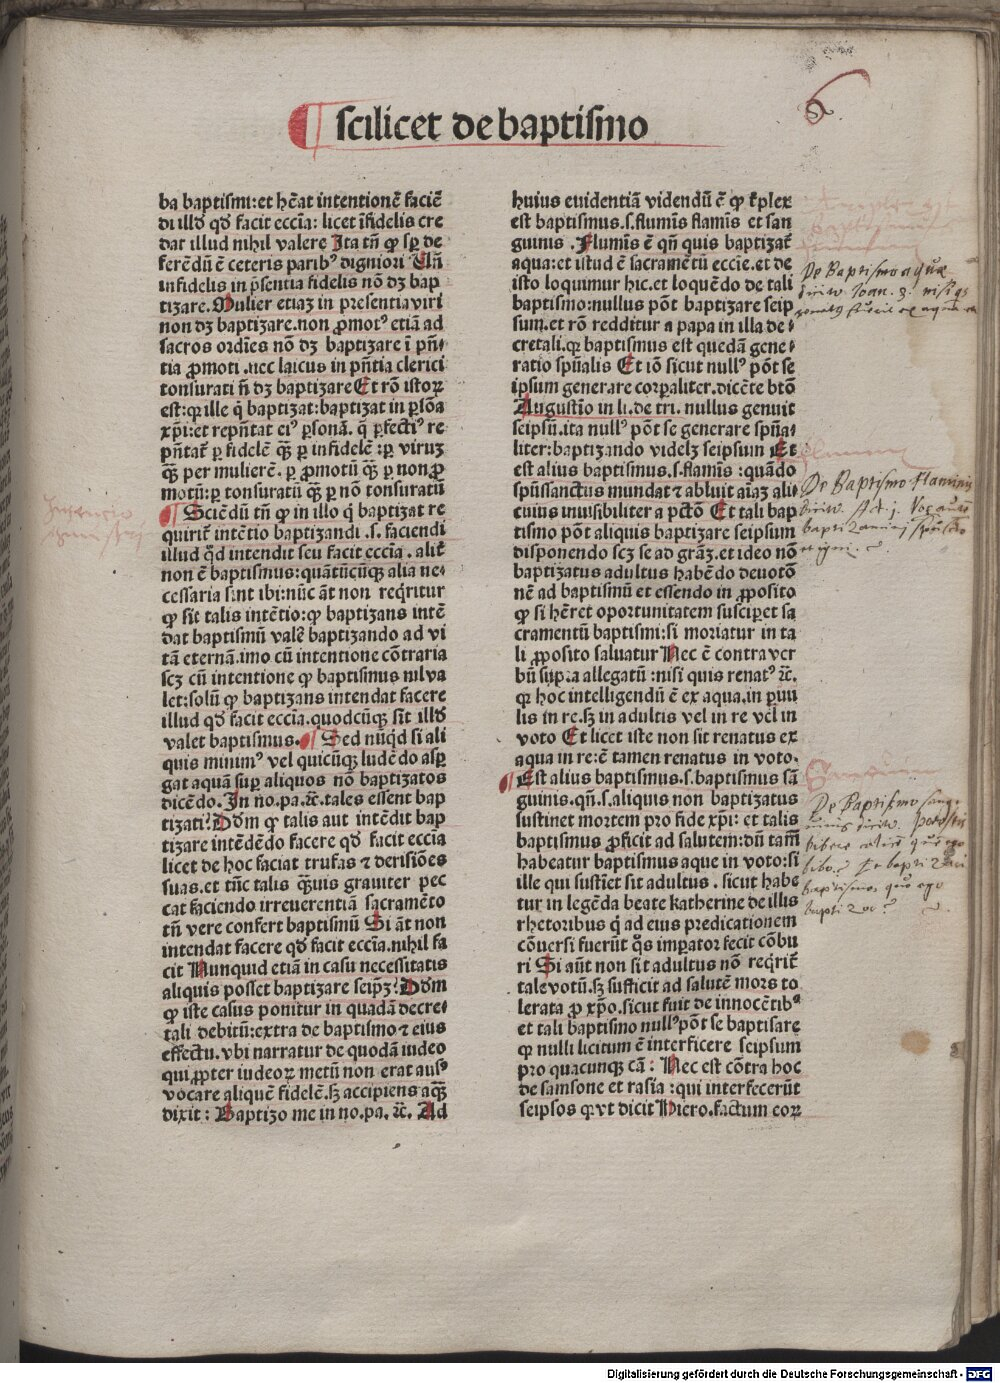 scilicet de baptismo
ba baptismi:et hēat intentionē faciē
di illď qď facit ecclīa: licet īfidelis cre
dat illud nihil valere Ita tñ ꝙ sp̄ de
ferēdū ē ceteris parib⁹ digniori Uñ
infidelis in p̄sentia fidelis nō dꝫ bap
tizare. Mulier etiaꝫ in presentia viri
non dꝫ baptizare. non ꝓmot⁹ etiā ad
sacros ordīes nō dꝫ baptizare ī pñ⸗
tia ꝓmoti .nec laicus in pñtia clerici
tonsurati ñ dꝫ baptizare Et rō istoꝝ
est:qꝛ ille q̇ baptizat:baptizat in ꝑsōa
xp̄i:et repñtat ei⁹ ꝑsonā. q̇ ꝑfecti⁹ re
pñtat̄ ꝑ fidelē q̄ꝫ ꝑ infidelē :ꝑ viruꝫ
q̄ꝫ per mulierē. ꝑ ꝓmotū q̄ꝫ ꝑ non ꝓ
motū:ꝑ tonsuratū q̄ꝫ ꝑ nō tonsuratū
Sciēdū tñ ꝙ in illo q̇ baptizat re
quirit̄ intētio baptizandi .s. faciendi
illud qď intendit seu facit ecclīa . alit̄
non ē baptismus:quātūcūqꝫ alia ne⸗
cessaria sint ibi:nūc āt non reqͥritur
ꝙ sit talis intētio:ꝙ baptizans intē
dat baptismū valē baptizando ad vi
tā eternā.imo cū intentione cōtraria
scꝫ cū intentione ꝙ baptismus nil va
let:solū ꝙ baptizans intendat facere
illud qď facit ecclīa.quodcūqꝫ sit illď
valet baptismus. Sed nūqͥd si ali
quis minim⁹ vel quicūqꝫ ludēdo asꝑ
gat aquā suꝑ aliquos nō baptizatos
dicēdo. In no.pa.ꝛc.tales essent bap
tizati? Dōm ꝙ talis aut intēdit bap
tizare intēdēdo facere qď facit ecclīa
licet de hoc faciat trufas ⁊ derisiões
suas.et tūc talis q̄ꝫuis grauiter pec
cat faciendo irreuerentiā sacramēto
tñ vere confert baptismū Si āt non
intendat facere qď facit ecclīa.nihil fa
cit Nunquid etiā in casu necessitatis
aliquis posset baptizare seipꝫ? Dōm
ꝙ iste casus ponitur in quadā decre⸗
tali debitū:extra de baptismo ⁊ eius
effectu. vbi narratur de quodā iudeo
qui ꝓpter iudeoꝝ metū non erat aus⁹
vocare aliquē fidelē.sꝫ accipiens aq̄ꝫ
dixit : Baptizo me in no.pa. ꝛc. Ad
huius euidentiā videndū ē ꝙ tͥplex
est baptismus.s.flumīs flamīs et san
guinis . Flumīs ē qñ quis baptizat̄
aqua:et istud ē sacramētū eccīe.et de
isto loquimur hic.et loquēdo de tali
baptismo:nullus pōt baptizare seip
sum.et rō redditur a papa in illa de⸗
cretali.qꝛ baptismus est quedā gene⸗
ratio spūalis Et iō sicut null⁹ pōt se
ipsum generare corꝑaliter.dicēte btō
Augustīo in li.de tri. nullus genuit
seipsū.ita null⁹ pōt se generare spūa⸗
liter:baptizando videlꝫ seipsum Et
est alius baptismus.s.flamīs :quādo
spūssanctus mundat ⁊ abluit aīaꝫ ali
cuius inuisibiliter a pctō Et tali bap
tismo pōt aliquis baptizare seipsum
disponendo scꝫ se ad grāꝫ.et ideo nō
baptizatus adultus habēdo deuotō
nē ad baptismū et essendo in ꝓposito
ꝙ si hēret oportunitatem susciperet sa
cramentū baptismi:si moriatur in ta
li ꝓposito saluatur Nec ē contra ver
bū supͥa allegatū :nisi quis renat⁹ ꝛc.
qꝛ hoc intelligendū ē ex aqua.in ꝑuu
lis in re.sꝫ in adultis vel in re vel in
voto Et licet iste non sit renatus ex
aqua in re:ē tamen renatus in voto.
Est alius baptismus.s.baptismus sā
guinis.qñ.s.aliquis non baptizatus
sustinet mortem pro fide xp̄i: et talis
baptismus ꝓficit ad salutem:dū tamē
habeatur baptismus aque in voto:si
ille qui sustīet sit adultus . sicut habe
tur in legēda beate katherine de illis
rhetoribus q̇ ad eius predicationem
cōuersi fuerūt q̇s imꝑator fecit cōbu
ri Si aūt non sit adultus nō reqͥrit̄
tale votū.sꝫ sufficit ad salutē mors to
lerata ꝓ xp̄o.sicut fuit de innocētib⁹
et tali baptismo null⁹ pōt se baptisare
ꝙ nulli licitum ē interficere seipsum
pro quacunqꝫ cā : Nec est cōtra hoc
de samsone et rasia :qui interfecerūt
seipsos qꝛ vt dicit Hiero.factum eoꝝ
De Baptismo aquæ
Joan. 3. nisi qs
De Baptismo Flaminis
De Baptismo sang⸗
Digitalisierung gefördert durch die Deutsche Forschungsgemeinschaft - DFG